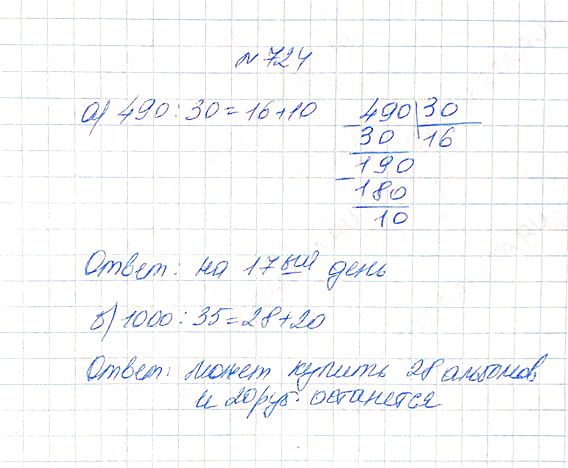 №724
а) 490 : 30 = 16 + 10
490 30
30 16
190
180
10
Ответ: на 17ый день
б) 1000 : 35 = 28 + 20
Ответ: может купить 28 альбомов
и 20 руб. останется